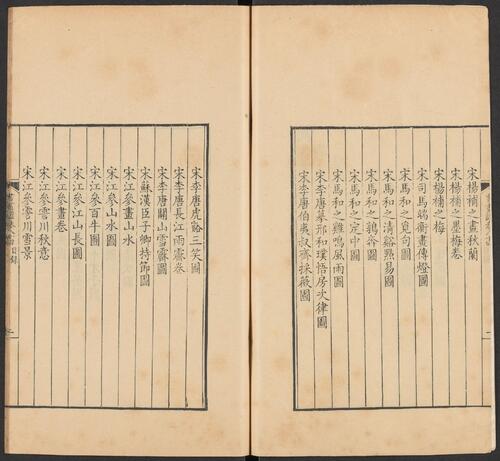 宋楊補之畫秋蘭
宋楊補之墨梅卷
宋楊補之梅
宋司馬端衡畫傳燈圖
宋馬和之覓句圖
宋馬和之清谿點易圖
宋馬和之鶉奔圖
宋馬和之定中圖
宋馬和之雞鳴風雨圖
宋李唐摹邢和璞悟房次律圖
宋李唐伯夷叔齊採薇圖
宋李唐虎谿三笑圖
宋李唐長江雨霽卷
宋李唐關山雪霽圖
宋蘇漢臣子卿持節圖
宋江參畫山水
宋江參山水圖
宋江參百牛圖
宋江參江山長圖
宋江參畫卷
宋江參雪川秋意
宋江參霅川雪景